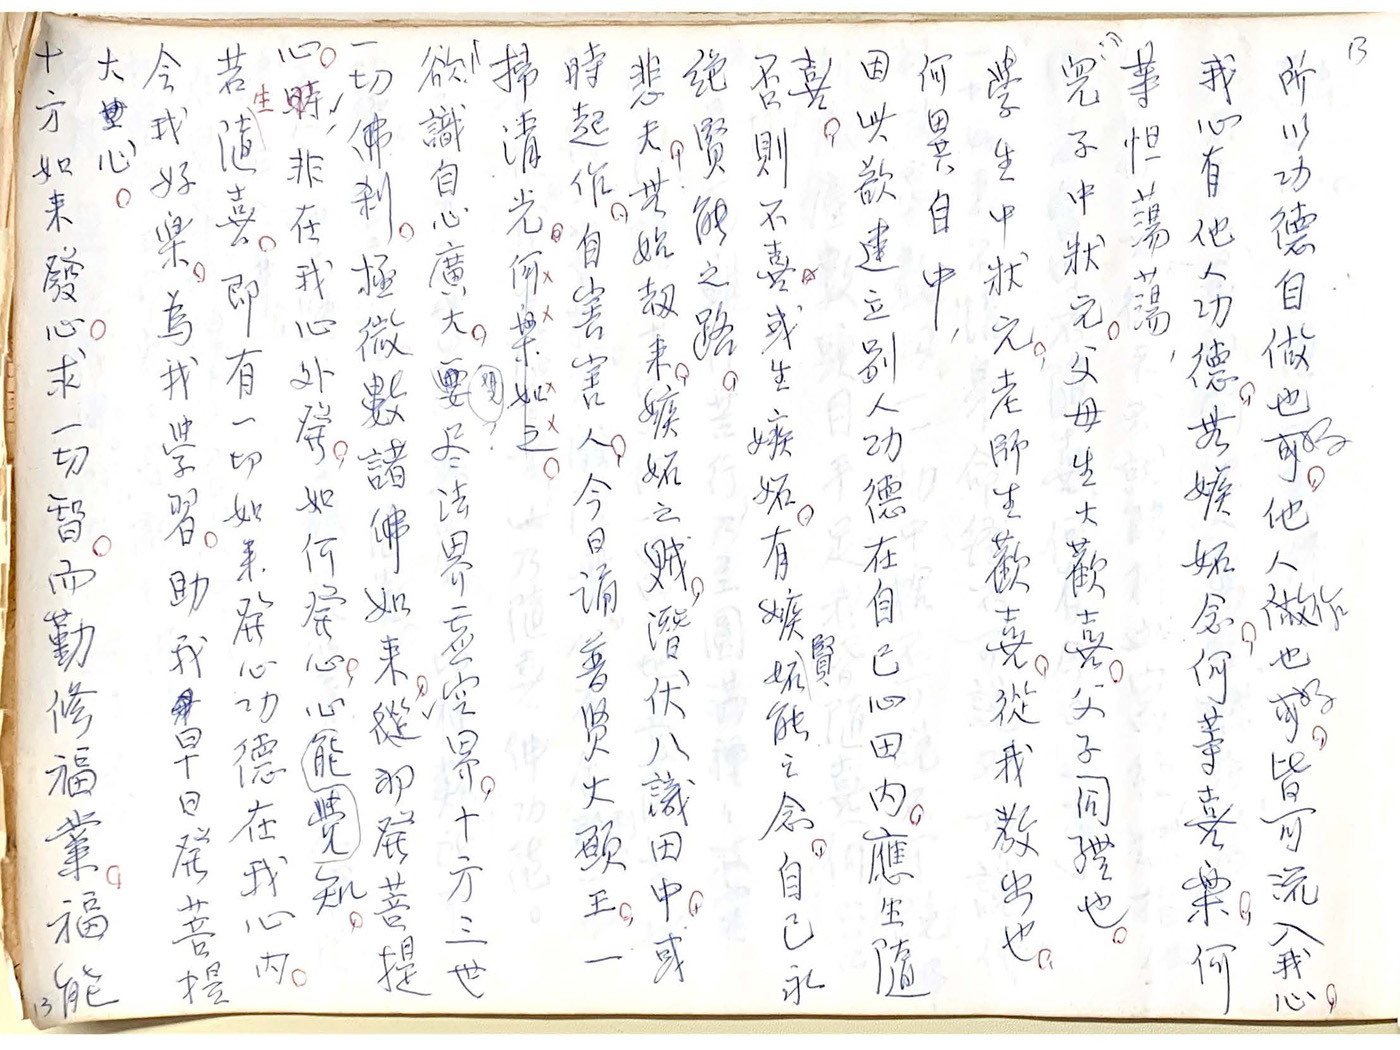 13
所以功德自做也好，他人做作也好，皆可流入我心，
我心有他人功德，無嫉妬念，何等喜樂，何
等怛蕩蕩，
兒子中狀元。父母生大歡喜。父子同體也。
學生中狀元，老師生歡喜，從我教出也。
何異自中，
因此歡建立別人功德在自己心田內，應生隨
喜，
否則不喜或生嫉妬，有嫉賢妬能之念，自己永
絕賢能之路，
悲夫，無始刼來，嫉妬之賊，潛伏八識田中，或
時起作，自害害人，今日誦普賢大願王，一
掃清光。何樂如之。
欲識自心廣大，要覓？尽法界虛空界，十方三世
一切佛刹。極微數諸佛如來，從初發菩提
心。時，非在我心外發，如何發心，心能覺知，
若生隨喜。即有一切如來發心功德在我心內。
今我好樂，為我學習。助我早日發菩提
大心。
十方如來發心。求一切智。而勤修福業，福能
13